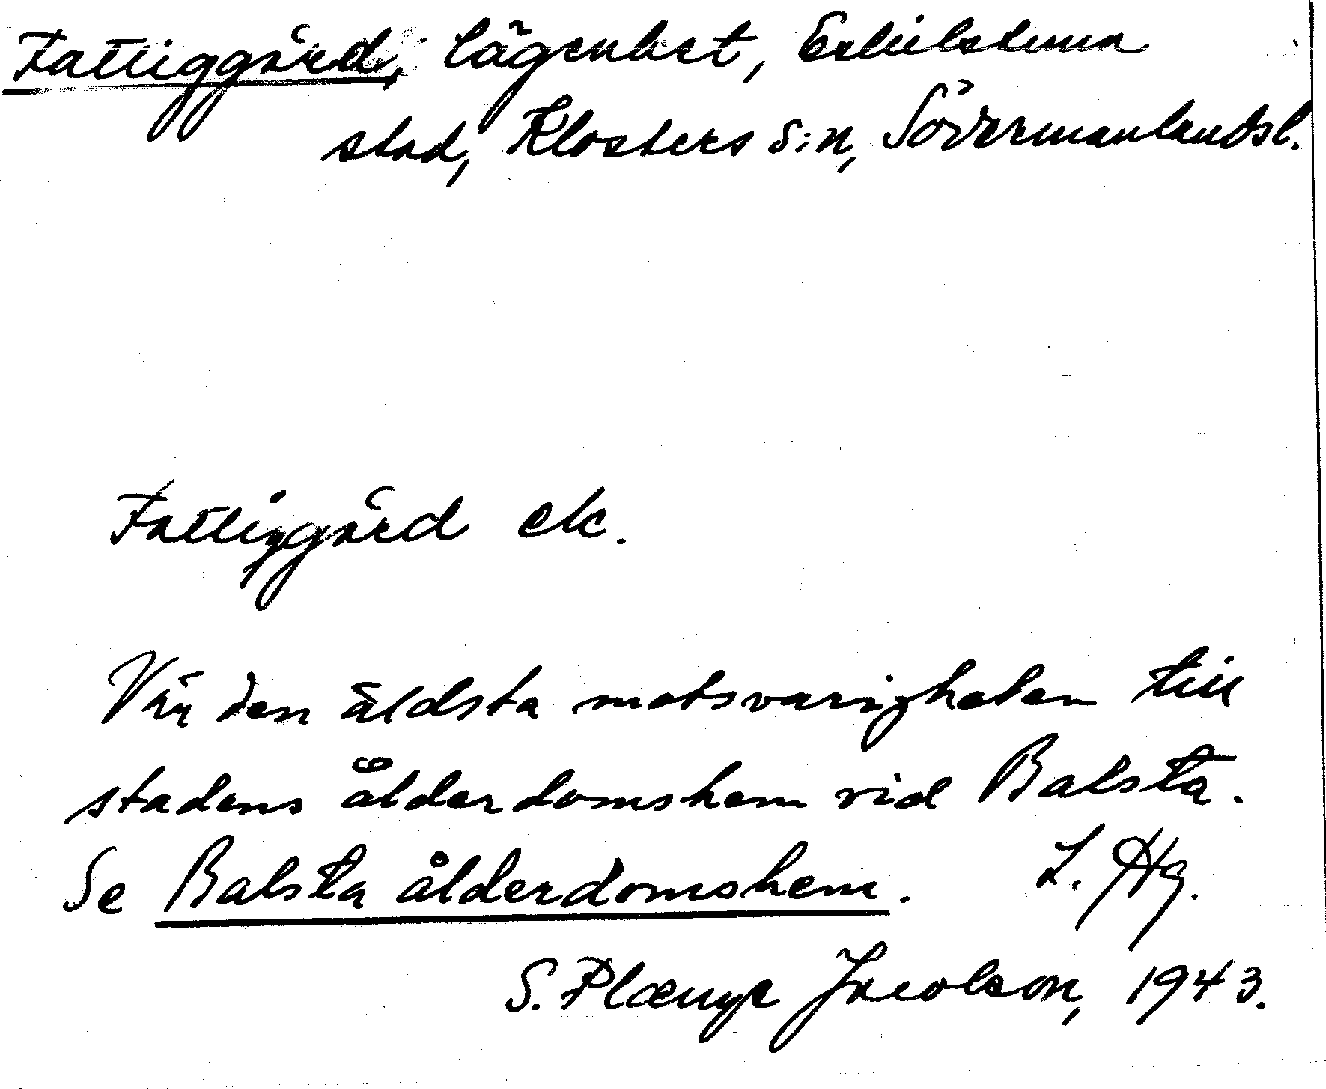 Fattiggård, lägenhet, Eskilstuna
stad, Klosters s:n, Södermanlandsl.
Fattiggård etc.
Var den äldsta motsvarigheten till
stadens ålderdomshem vid Balsta.
Se Balsta ålderdomshem. I. Hg.
S. Plænge Jacobson, 1943.